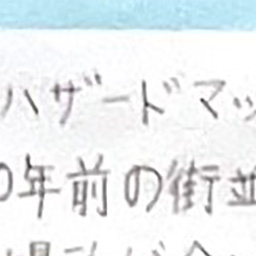 ハザードマッ
0年前の街並